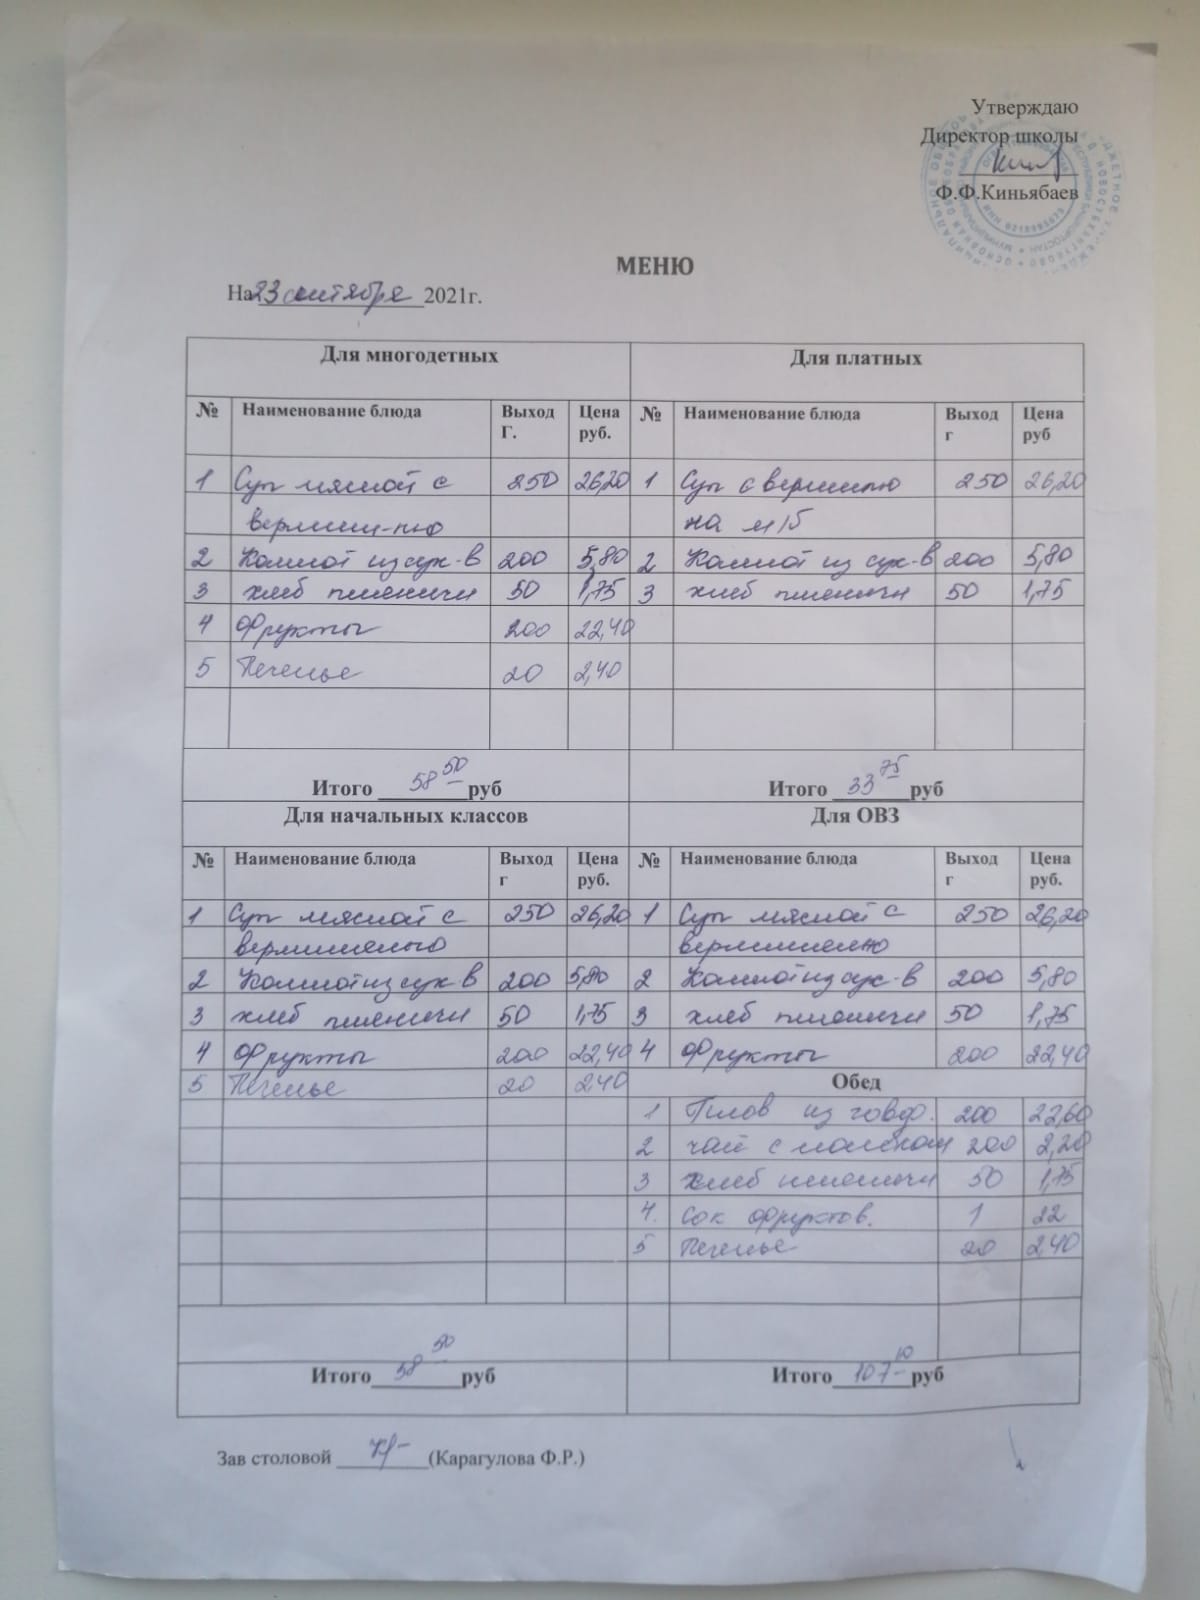 Утверждаю
Директор школы
Ф.Ф.Киньябаев
МЕНЮ
На 23 сентября 2021г.
Для многодетных Для платных
№ Наименование блюда Выход Г. Цена руб. № Наименование блюда Выход г Цена руб
1 Суп мясной с 250 26,20 1 Суп с вермишелью 250 26,20
вермиш-лю на м/б
2 Компот из сух-в 200 5,80 2 Компот из сух-в 200 5,80
3 хлеб пшеничн 50 1,75 3 хлеб пшеничн 50 1,75
4 Фрукты 200 22,40
5 Печенье 20 2,40
Итого 58 50 руб Итого 33 75 руб
Для начальных классов Для ОВЗ
№ Наименование блюда Выход г Цена руб. № Наименование блюда Выход г Цена руб.
1 Суп мясной с 250 26,20 1 Суп мясной с 250 26,20
вермишелью вермишелью
2 Компот из сух-в 200 5,80 2 Компот из сух-в 200 5,80
3 хлеб пшеничн 50 1,75 3 хлеб пшеничн 50 1,75
4 Фрукты 200 22,40 4 Фрукты 200 22,40
5 Печенье 20 2,40 Обед
1 Плов из говяд. 200 22,60
2 чай с молоком 200 2,20
3 хлеб пшеничн 50 1,75
4. Сок фруктов. 1 22
5 Печенье 20 2,40
Итого 58 50 руб Итого 107 10 руб
Зав столовой (Карагулова Ф.Р.)